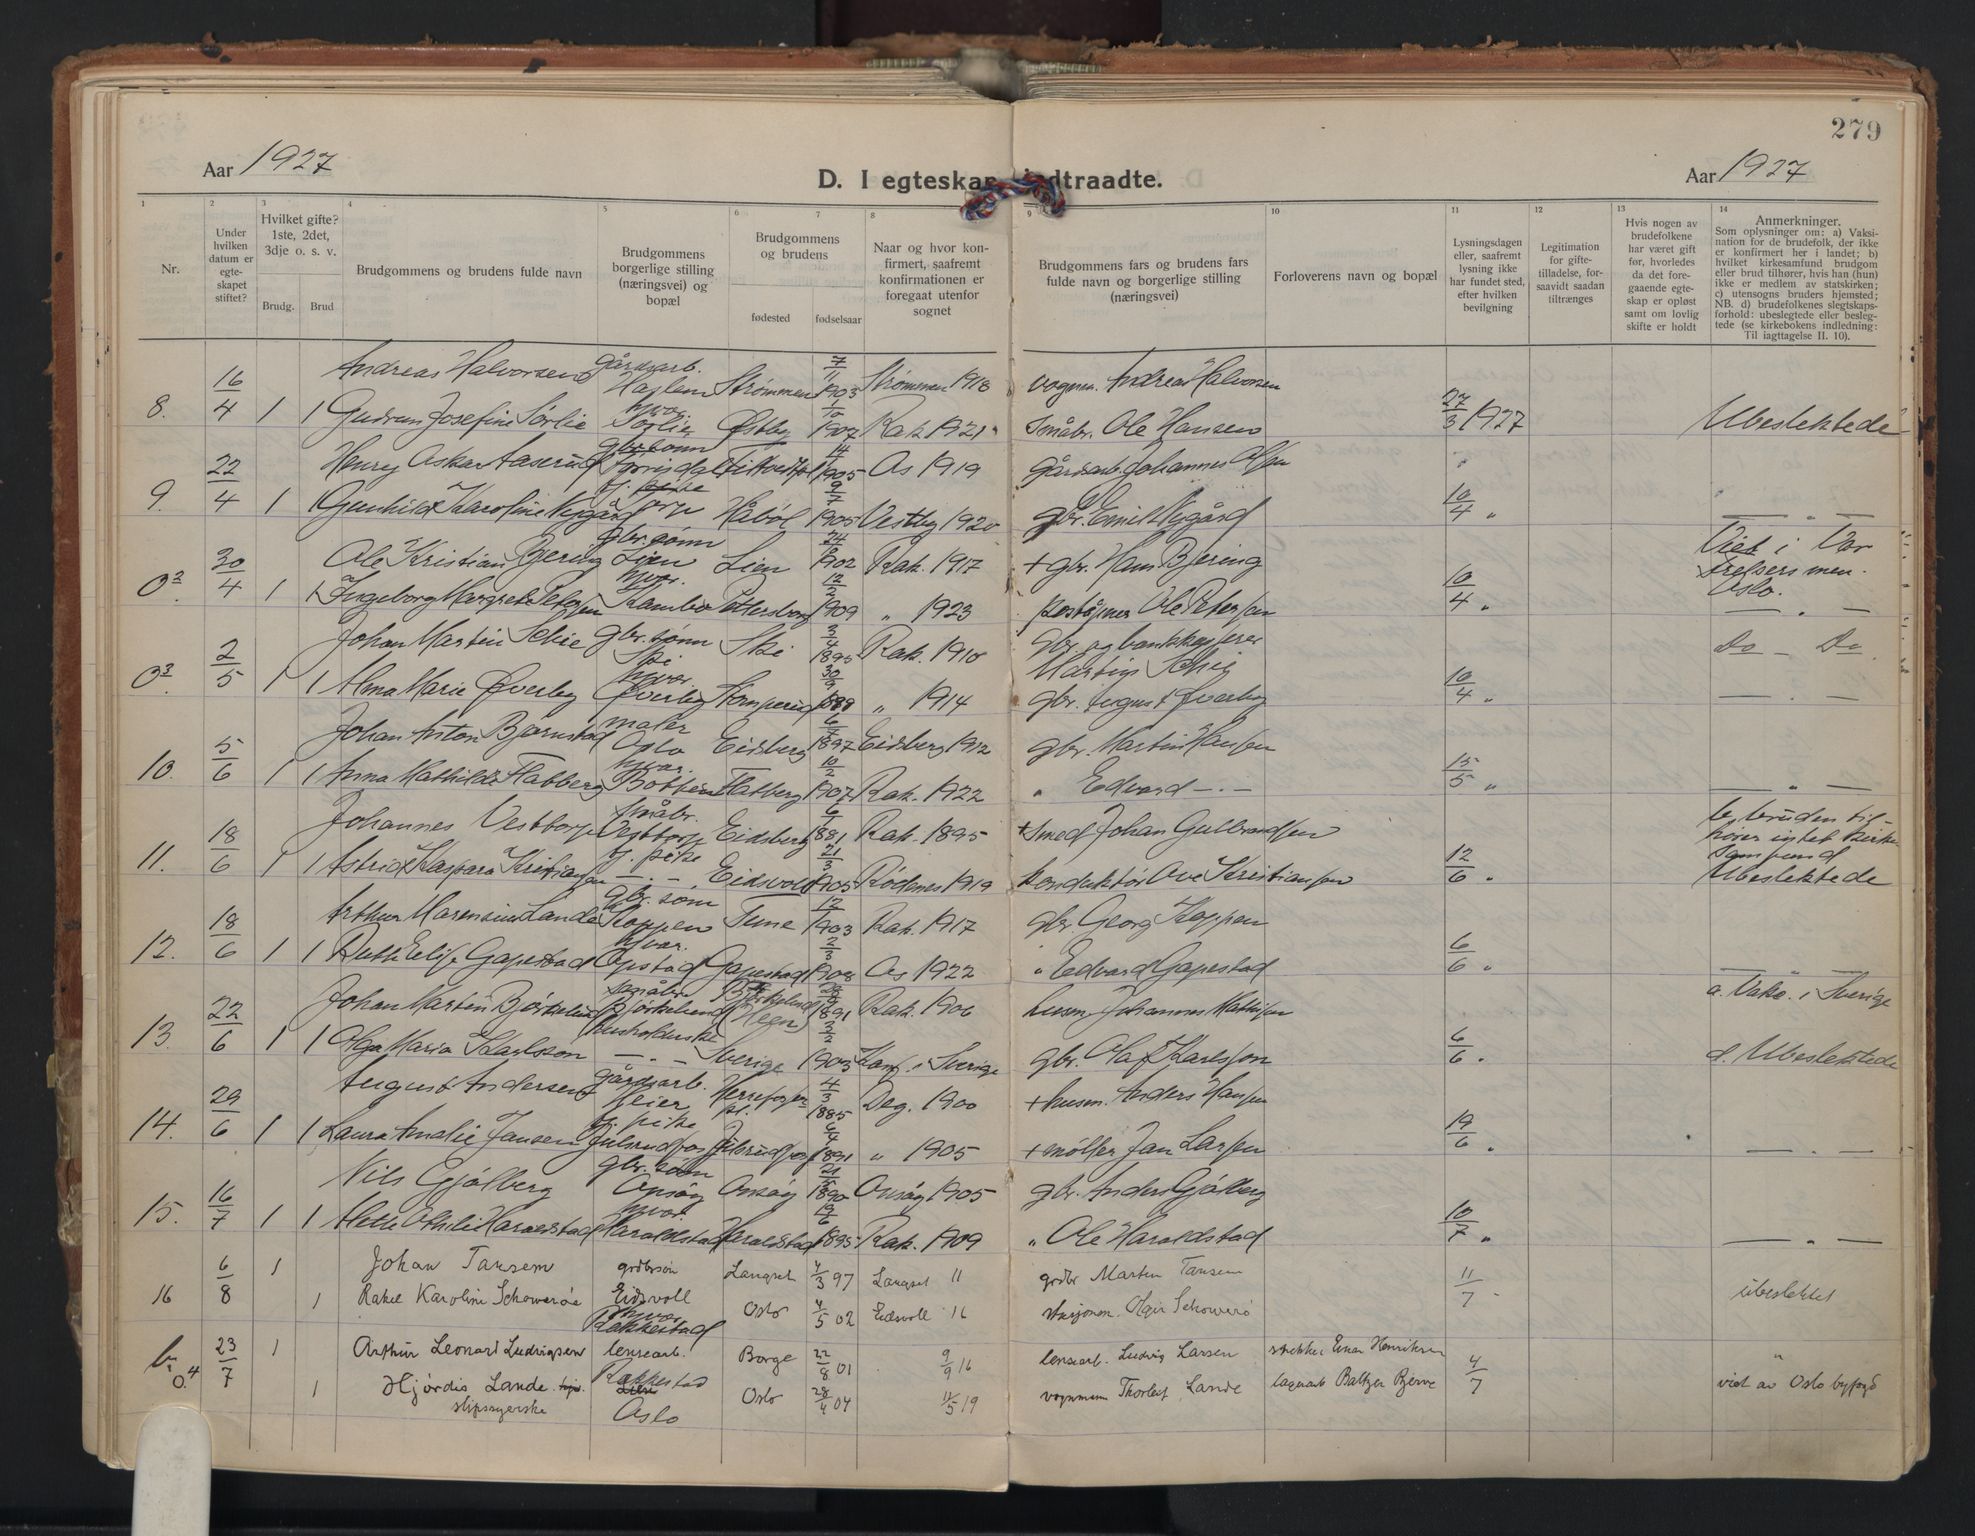 279
Aar 1927
D. I egteskap indtraadte.
Aar 1927
1 2 3 4 5 6 7 8 9 10 11 12 13 14
Nr.
Under hvilken datum er egteskapet stiftet?
Hvilket gifte? 1ste, 2det, 3dje o. s. v.
Brudg. Brud
Brudgommens og brudens fulde navn
Brudgommens borgerlige stilling (næringsvei) og bopæl
Brudgommens og brudens
fødested fødselsaar
Naar og hvor konfirmert, saafremt konfirmationen er foregaat utenfor sognet
Brudgommens fars og brudens fars fulde navn og borgerlige stilling (næringsvei)
Forloverens navn og bopæl
Lysningsdagen eller, saafremt lysning ikke har fundet sted, efter hvilken bevilgning
Legitimation for giftetilladelse, forsaavidt saadan tiltrænges
Hvis nogen av brudefolkene har været gift før, hvorledes da det foregaaende egteskap er opløst samt om lovlig skifte er holdt
Anmerkninger.
Som oplysninger om: a) Vaksination for de brudefolk, der ikke er konfirmert her i landet; b) hvilket kirkesamfund brudgom eller brud tilhører, hvis han (hun) ikke er medlem av statskirken; c) utensogns bruders hjemsted; NB. d) brudefolkenes slegtskapsforhold: ubeslegtede eller beslegtede (se kirkebokens indledning: Til iagttagelse II. 10).
Andreas Halvorsen gårdsarb. Strømmen 7/11 1903 Strømmen 1918 vognm. Andreas Halvorsen
8. 16/4 1 1 Gudrun Josefine Sørlie hjvær. Sørlie Østby 1/10 1907 Rak. 1921 Småbr. Ole Hansen 27/3 1927 Ubeslektede
Henry Oskar Aaserud gbr.sønn 1905 Ås 1919 gårdsarb. Johannes Olsen
9. 22/4 1 1 Gunhild Karoline Nygård Håböl 9/7 1905 Vestby 1920 gbr. Emil Nygård 10/4 "
Ole Kristian Bjering gbr.sønn Lien Lien 24/ 1902 Rak. 1917 + gbr. Hans Bjering Viet i Vor Frelsers men. Oslo.
0² 30/4 1 1 Ingeborg Margrete Petersen hjvær. Kambo Pettersborg 12/2 1909 " 1923 Ole Petersen 10/4 " — " —
Johan Martin Schie gbr. sønn Ski Ski 3/4 1895 Rak. 1910 gbr. og bankkasserer Martin Schie Do — Do
0³ 2/5 1 1 Alma Marie Øverby hjvær. Øverby 30/ " 1914 gbr. August Øverby 10/4 " — " —
Johan Anton Bjørnstad maler Oslo Eidsberg 6/ 1897 Eidsberg 1912 gbr. Martin Hansen
10. 5/6 1 1 Anna Mathilde Flatberg hjvær. Flatberg 10/2 1907 Rak. 1922 " Edvard — " — 15/5 " — " —
Johannes Vesttorp småbr. Vesttorp Eidsberg 6/1 1881 Rak. 1895 + Smed Johan Gulbrandsen b, bruden tilhører intet kirkesamfund
11. 18/6 1 1 Astrid Kaspara Kristiansen tj. pike — " — Eidsvold 21/3 1905 Rödenes 1919 konduktör Ove Kristiansen 12/6 " Ubeslektede
Arthur Marensius Lande gbr. sønn Koppen Tune 12/1 1903 Rak. 1917 gbr. Georg Koppen
12. 18/6 1 1 Ruth Elise Gapestad hjvær. Opstad Gapestad 2/3 1908 Ås 1922 " Edvard Gapestad 6/6 " — " —
Johan Martin Björkelund småbr. Björkelund Björkelund (Hegn) 1891 Rak. 1906 husm. Johannes Mathisen a. Vakc. i Sverige
13. 22/6 1 1 Olga Maria Karlsson husholderske — " — Sverige 1905 Konf. i Sverige gbr. Olaf Karlsson 6/6 " d. Ubeslektede
August Andersen gårdsarb. Heier 4/3 1885 Deg. 1900 + husm. Anders Hansen
14. 29/6 1 1 Laura Amalie Jansen tj. pike Julsrudfoss Julsrudfoss 6/4 1891 " 1905 + møller Jan Larsen 19/6 " — " —
Nils Gjølberg gbr. sønn Onsøy Onsøy 21/ 1890 Onsøy 1905 gbr. Anders Gjølberg
15. 16/7 1 1 Mette Othilie Haraldstad hjvær. Haraldstad Haraldstad 19/6 1895 Rak. 1909 " Ole Haraldstad 10/7 " — " —
6/8 1 Johan Tansem grdbrsøn Langset 4/3 97 Langset 11 grdbr Martin Tansem
16 1 Rakel Karoline Schowerøe Eidsvoll hjvær Rakkestad Oslo 4/5 02 Eidsvoll 16 stasjonsm. Olgir Schowerö 11/7 ubeslektet
23/7 1 Arthur Leonart Ludvigsen lensearb. Rakkestad Borge 22/8 01 9/9 16 lensearb. Ludvig Larsen Einar Henriksen 4/7 "
0.4 1 Hjørdis Lande slipssyerske Oslo Oslo 28/4 04 11/5 19 vognmann Thorleif Lande lagerarb Baltzer Bjerve viet av Oslo byfogd